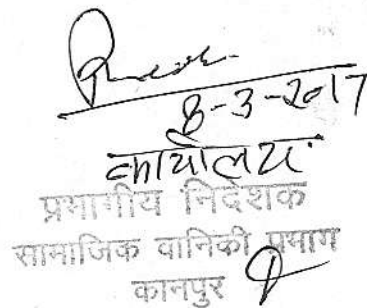 8-3-2017
कार्यालय
प्रभागीय निदेशक
सामाजिक वानिकी प्रभाग
कानपुर